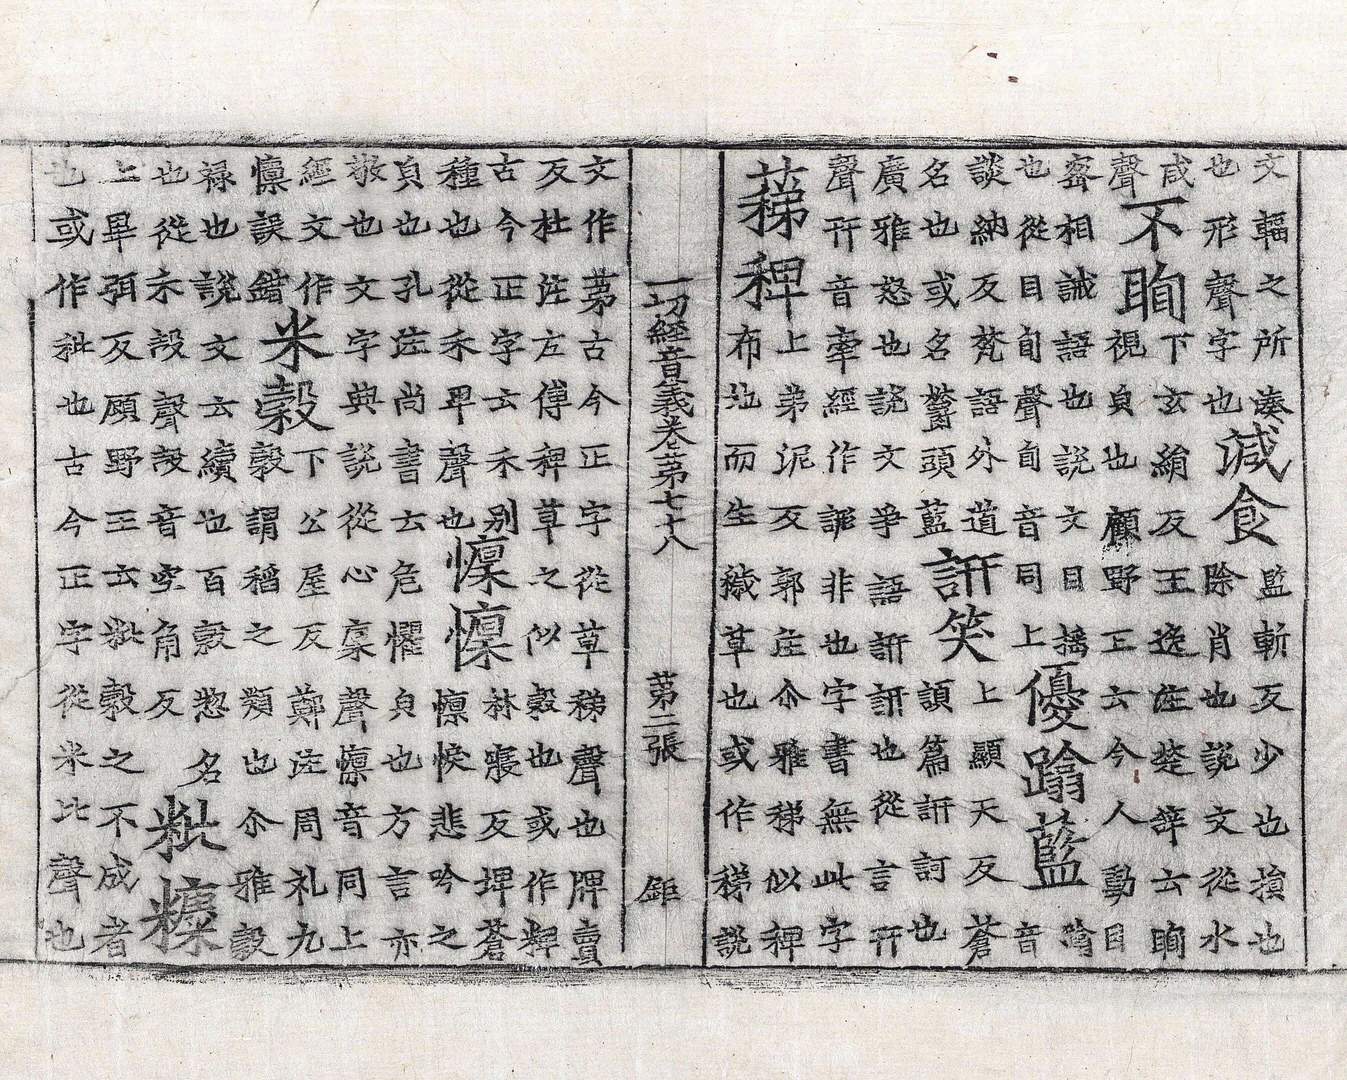 文輻之所湊
也形聲字也
減食
監斬反少也損也
除肖也說文從水
咸
聲
不眴
下玄絹反王逸注楚辝云眴
視皃也顧野王云今人動目
密相誡語也說文目揺
也從目旬聲旬音同上
優蹹藍
蹹
音
談納反梵語外道
名也或名欝頭藍
訮笑
上顯天反蒼
頡篇訮訶也
廣雅怒也說文爭語訮訮也從言幵
聲幵音牽經作誢非也字書無此字
蕛稗
上弟泥反郭注尒雅稊似稗
布地而生穢草也或作稊說
一切經音義卷第七十八　第二張　鉅
文作苐古今正字從草稊聲也牌賣
反杜注左傳稗草之似穀也或作粺
古今正字云禾別
種也從禾卑聲也
懍懍
林寑反埤蒼
懍悷悲吟之
皃也孔注尚書云危懼皃也方言亦
敬也文字典說從心稟聲懍音同上
經文作
懔誤錯
米穀
下公屋反鄭注周礼九
穀謂稻之類也尒雅穀
禄也說文云續也百穀惣名
也從禾㱿聲㱿音空角反
粃糠
上畢弭反顧野王云粃穀之不成者
也或作秕也古今正字從米比聲也